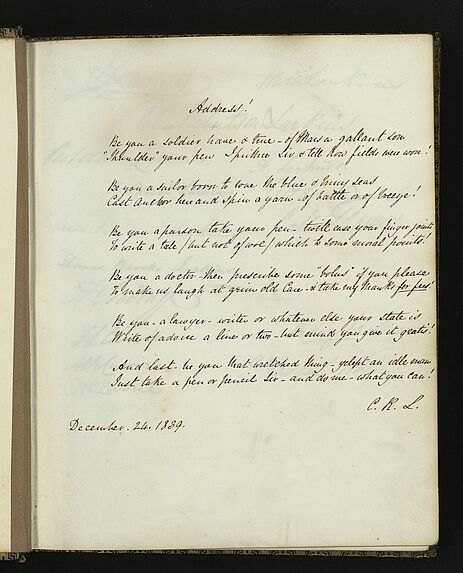 Address!
Be you a soldier brave & true - of Mars a gallant son
"Shoulder" your pen - Sir & tell how fields were won!
Be you a sailor born to love the blue & briny seas
Cast anchor here and spin a yarn - of battle or of breeze!
Be you a parson take your pen - 'twill ease your finger joints
To write a tale (but not of woe) which to some moral points!
Be you a doctor - then prescribe some "bolus" if you please
To make us laugh at grim old Care - & take my thanks for fees!
Be you - a lawyer - writer or whatever else your state is
Write of advice a line or two - but mind you give it gratis!
And last - be you that wretched thing - yclept an idle man
Just take a pen or pencil Sir - and do me - what you can!
C. R. L.
December. 24. 1839.